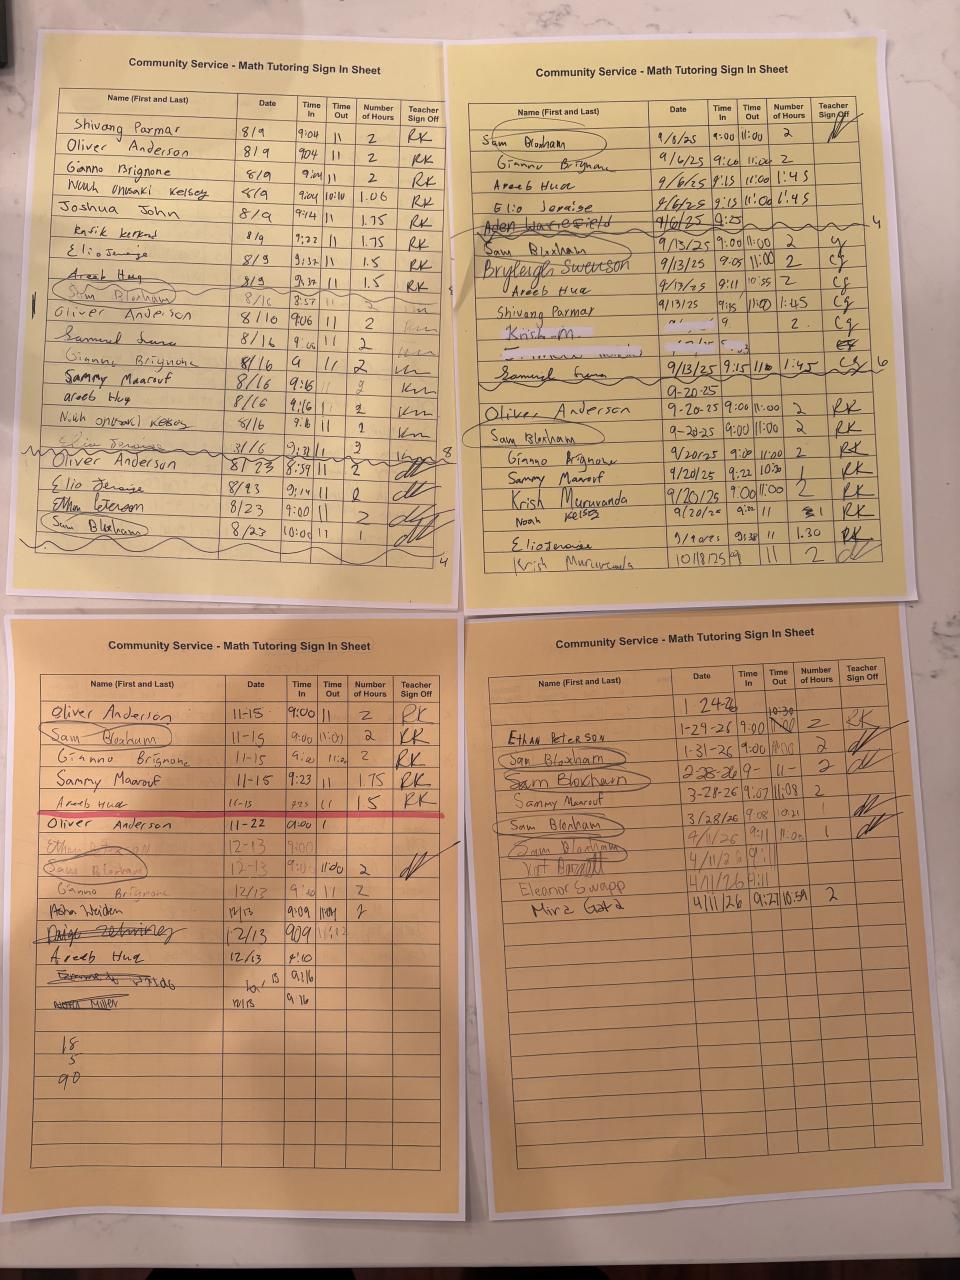 Community Service - Math Tutoring Sign In Sheet
Name (First and Last) Date Time In Time Out Number of Hours Teacher Sign Off
Shivang Parmar 8/9 9:04 11 2 RK
Oliver Anderson 8/9 904 11 2 RK
Gianno Brignone 8/9 9:04 11 2 RK
Noah Onusaki Kelsey 8/9 9:04 10:10 1.06 RK
Joshua John 8/9 9:14 11 1.75 RK
8/9 9:22 11 1.75 RK
Elio Jeraige 8/9 9:32 11 1.5 RK
Areeb Huq 8/9 9:30 11 1.5 RK
Sam Bloxham 8/16 8:57 11 2
Oliver Anderson 8/10 9:06 11 2 Km
Samuel 8/16 11 2 Km
Gianno Brignone 8/16 9 11 2 Km
Sammy Maarouf 8/16 9:16 11 2 Km
Areeb Huq 8/16 9:16 11 2 Km
Noah Onusaki Kelsey 8/16 9:16 11 2 Km
Elio Jeraige 8/16 9:31 11 2 Km 8
Oliver Anderson 8/23 8:59 11 2
Elio Jeraige 8/23 9:14 11 2
Ethan Peterson 8/23 9:00 11 2
Sam Bloxham 8/23 10:00 11 1
4
Community Service - Math Tutoring Sign In Sheet
Name (First and Last) Date Time In Time Out Number of Hours Teacher Sign Off
Sam Bloxham 9/6/25 9:00 11:00 2
Gianno Brignone 9/6/25 9:10 11:00 2
Areeb Huq 9/6/25 9:15 11:00 1:45
Elio Jeraige 9/6/25 9:15 11:00 1:45
Aden Warefield 9/6/25 9:25 4
Sam Bloxham 9/13/25 9:00 11:00 2 Cg
Bryleigh Swenson 9/13/25 9:05 11:00 2 Cg
Areeb Huq 9/13/25 9:11 10:55 2 Cg
Shivang Parmar 9/13/25 9:15 11:00 1:45 Cg
Krish M. 9 2 Cg
Samuel 9/13/25 9:15 11:00 1:45 Cg 6
9-20-25
Oliver Anderson 9-20-25 9:00 11:00 2 RK
Sam Bloxham 9-20-25 9:00 11:00 2 RK
Gianno Brignone 9/20/25 9:00 11:00 2 RK
Sammy Maarouf 9/20/25 9:22 10:30 1 RK
Krish Muruvanda 9/20/25 9:00 11:00 2 RK
Noah Kelsey 9/20/25 9:22 11 1 RK
Elio Jeraige 9/20/25 9:28 11 1.30 RK
Krish Muruvanda 10/18/25 9 11 2
Community Service - Math Tutoring Sign In Sheet
Name (First and Last) Date Time In Time Out Number of Hours Teacher Sign Off
Oliver Anderson 11-15 9:00 11 2 RK
Sam Bloxham 11-15 9:00 11:00 2 RK
Gianno Brignone 11-15 9:00 11:00 2 RK
Sammy Maarouf 11-15 9:23 11 1.75 RK
Areeb Huq 11-15 11 1.5 RK
Oliver Anderson 11-22 9:00 1
Ethan Peterson 12-13 9:00
Sam Bloxham 12-13 9:00 11:00 2
Gianno Brignone 12/13 9:00 11 2
Asha Weiden 12/13 9:09 11:04 2
12/13 909 11:02
Areeb Huq 12/13 9:10
9:16
Miller 12/13 9:16
18
5
90
Community Service - Math Tutoring Sign In Sheet
Name (First and Last) Date Time In Time Out Number of Hours Teacher Sign Off
1 24-26
Ethan Peterson 1-29-26 9:00 10:30 11:00 2 RK
Sam Bloxham 1-31-26 9:00 11:00 2
Sam Bloxham 2-28-26 9- 11- 2
Sammy Maarouf 3-28-26 9:07 11:08 2
Sam Bloxham 3/28/26 9:08 10:21 1
Sam Bloxham 4/11/26 9:11 11:00 1
4/11/26 9:11
Eleanor Swapp 4/11/26 9:11
Mira Gata 4/11/26 9:27 10:59 2